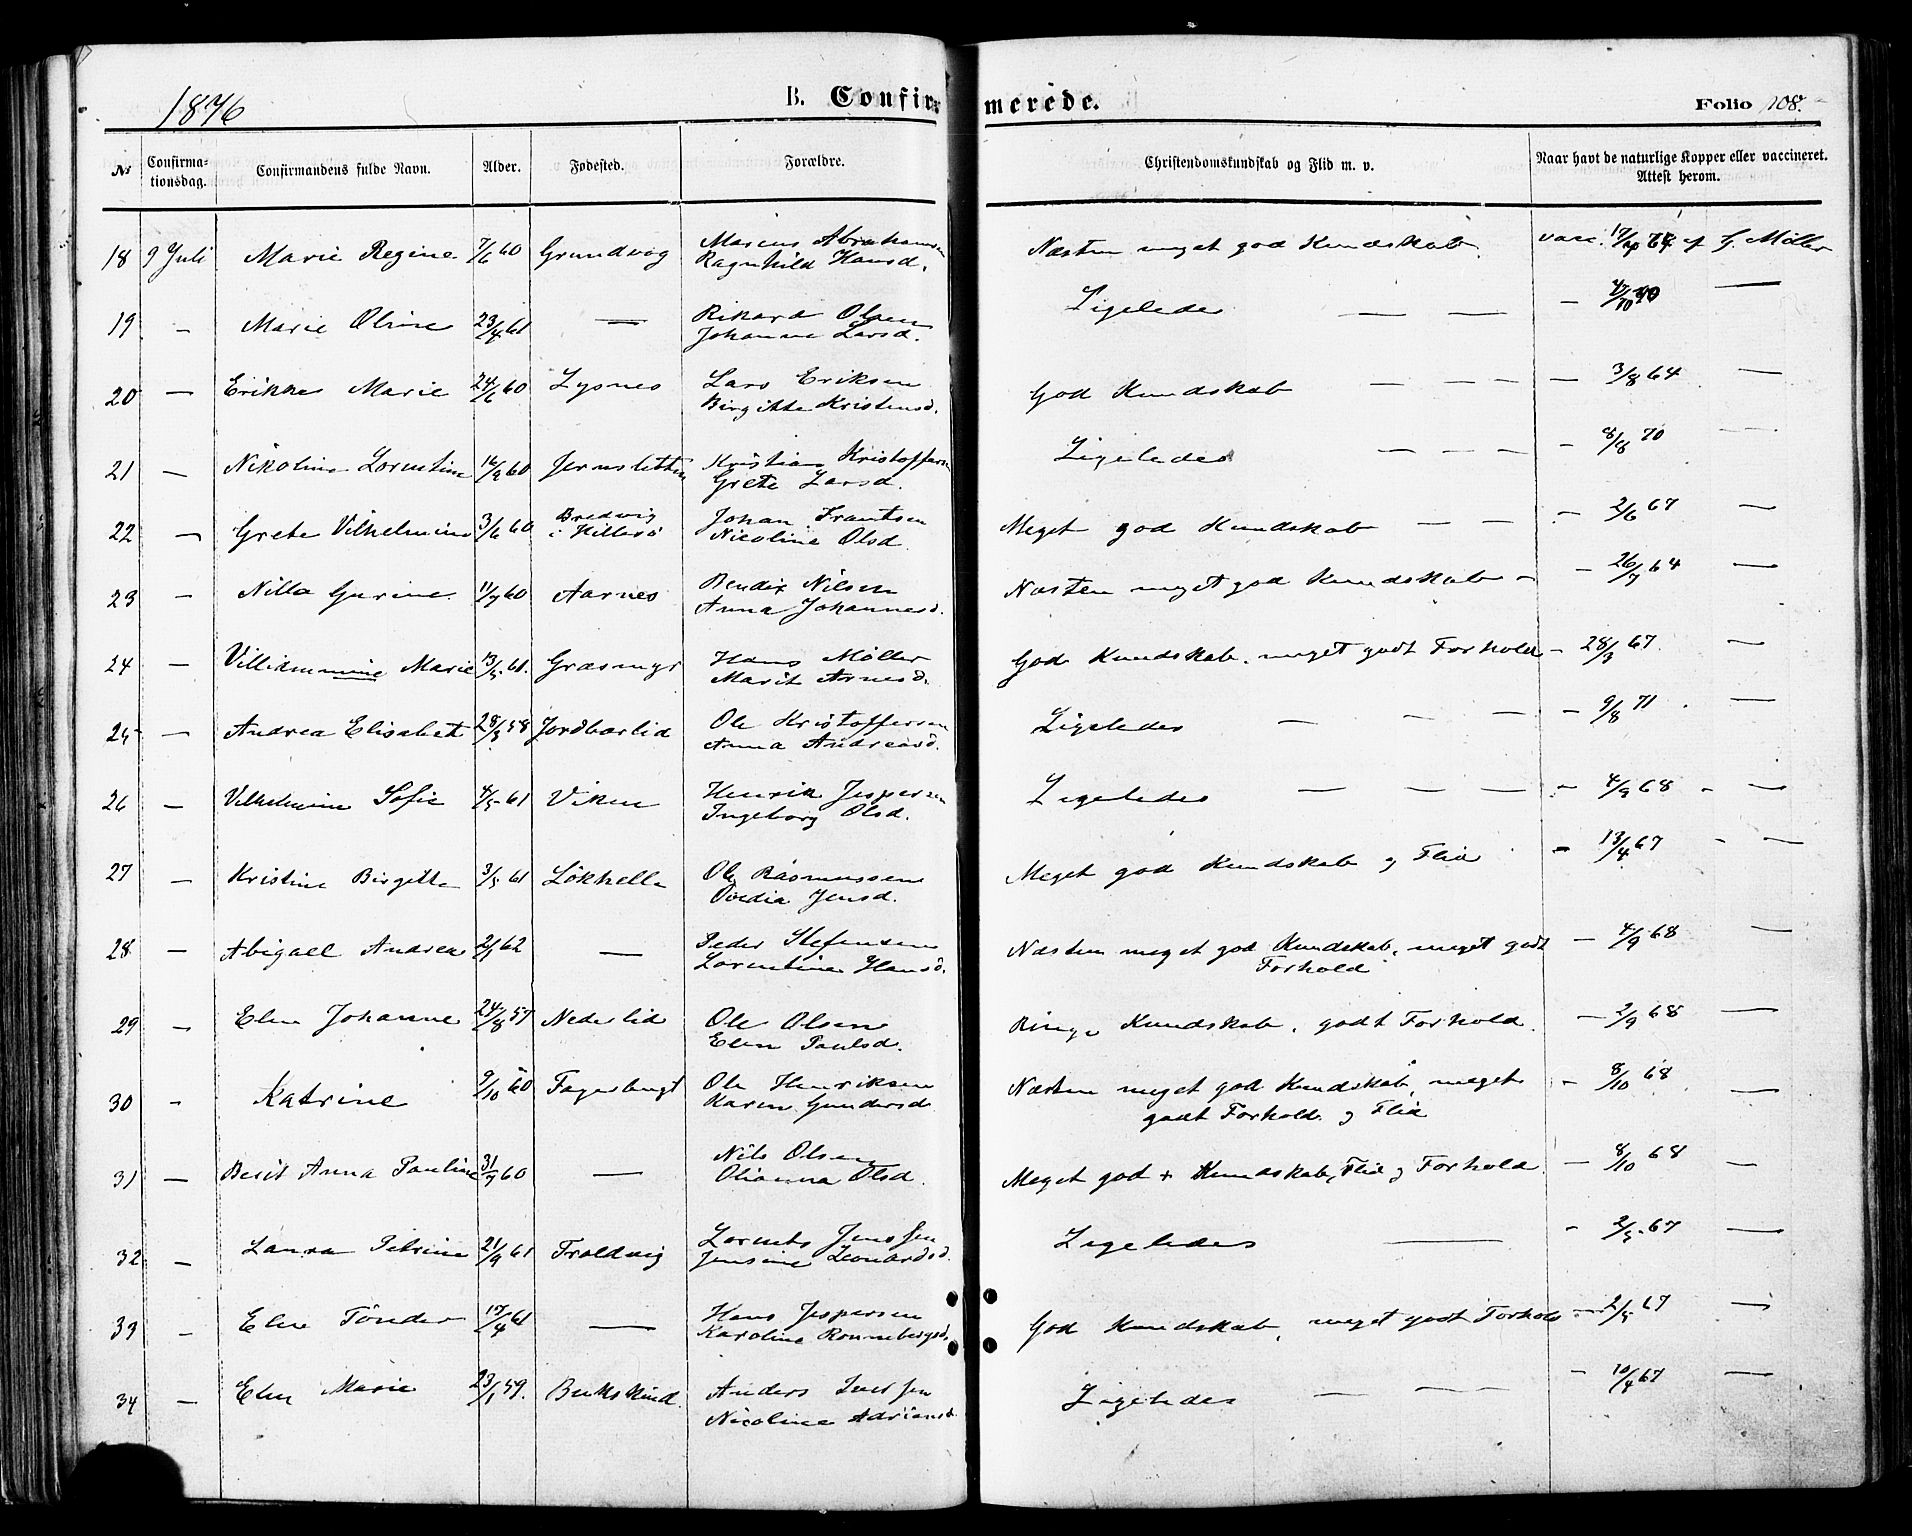 1876 B. Confirmerede. Folio 108.
№ Confirmationsdag. Confirmandens fulde Navn. Alder. Fødested. Forældre. Christendomskundskab og Flid m. v. Naar havt de naturlige Kopper eller vaccineret. Attest herom.
18 9 Juli Marie Regine 7/6 60 Grundvog Marius Abrahamsen Næsten meget god Kundskab. vacc. af G. Møller
Ragnhild Hansd.
19 – Marie Oline 23/4 61 — Rikard Olsen Ligeledes — — –
Johanna Larsd.
20 — Erikka Marie 24/6 60 Lysnes Lars Eriksen God Kundskab — – – — 3/8 64 —
Birgitte Kristensd.
21 — Nikoline Lorentine 16/9 60 Jernsletten Kristian Kristoffersen Ligeledes — — — – 8/8 70 —
Grete Larsd.
22 – Grete Vilhelmine 3/6 60 Bredvig i Hillesö Johan Frantsen Meget god Kundskab — — – 2/6 67 —
Nicoline Olsd.
23 – Nilla Gurine 11/7 60 Aarnes Bendix Nilsen Næsten meget god Kundskab – – 26/7 64 —
Anna Johannesd.
24 — Villiammine Marie 13/5 61. Græsmyr Hans Møller God Kundskab. meget godt Forhold – 28/3 67. —
Marit Arnesd.
25 — Andrea Elisabet 28/3 58 Jordbærlid Ole Kristoffersen Ligeledes — – — – 9/8 71. —
Anna Andreasd.
26 – Vilhelmine Sofie 4/5 61 Viken Henrik Jespersen Ligeledes — — — – 4/9 68 - —
Ingeborg Olsd.
27 – Kristine Birgitta 3/5 61 Lökhella Ole Rasmussen Meget god Kundskab og Flid – 13/4 67 - —
Ovedia Jensd.
28 – Abigael Andrea 2/1 62 — Peder Stefensen Næsten meget god Kundskab, meget godt — 4/9 68 —
Lorentine Hansd. Forhold
29 – Elen Johanne 24/8 57 Nederlid Ole Olsen Ringe Kundskab, godt Forhold. — 2/9 68 —
Elen Paulsd.
30 – Katrine 9/10 60 Fagerbugt Ole Henriksen Næsten meget god Kundskab, meget – 8/10 68 —
Karen Gundersd. godt Forhold og Flid
31 — Berit Anna Pauline 31/7 60 — Nils Olsen Meget god Kundskab, Flid og Forhold. — 8/10 68 —
Olianna Olsd.
32 – Laura Petrine 21/9 61 Troldvig Lorents Jenssen Ligeledes — – 2/5 67 —
Jensine Leonardsd.
33 – Elen Tönder 17/4 61 — Hans Jespersen God Kundskab, meget godt Forhold — 2/5 67 —
Karoline Ronnebergsd.
34 – Elen Marie 23/1 59. Bukskind Anders Iversen Ligeledes — — — – 10/4 67 —
Nicoline Adriansd.